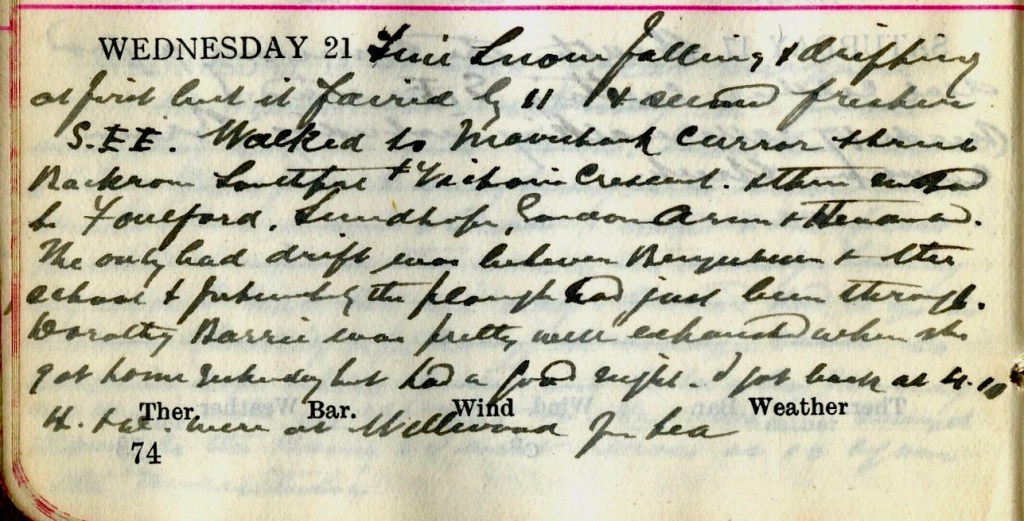 WEDNESDAY 21 Fine Snow falling & drifting
at first but it faired by 11 & second freshen
S.EE. Walked to Mavisbank Curror Street
Backrow Southfort & Victoria Crescent. & then
to Foulford, Sundhope, London Arms &
The only bad drift was between & the
school & fortunately the plough had just been through.
Dorothy Barrie was pretty well exhausted when she
got home yesterday but had a good night. I got back at 4.10
Ther. Bar. Wind Weather
H. & were at Wellwood for tea
74